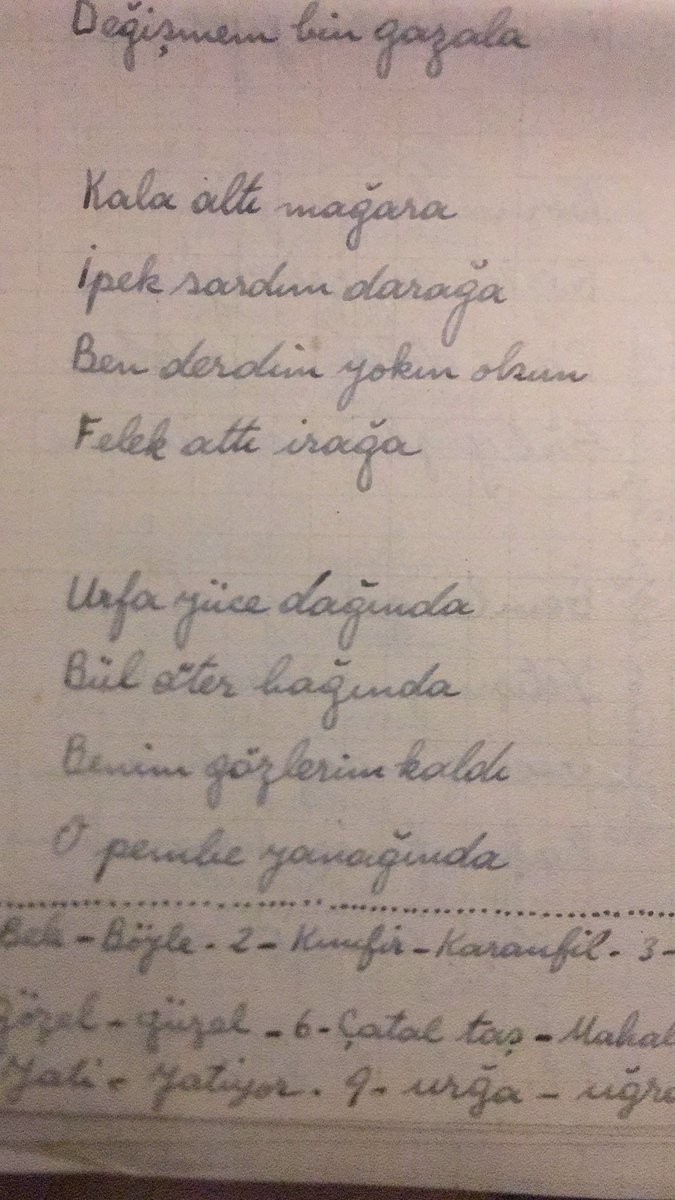 Değişmem bin gazala
Kala altı mağara
İpek sardım darağa
Ben derdim yokın olsun
Felek attı irağa
Urfa yüce dağında
Bül öter bağında
Benim gözlerim kaldı
O pembe yanağında
Bele - Böyle. 2 - Kınıfir - Karanfil. 3 -
Gözel - güzel - 6 - Çatal taş - Mahal
Yati - Yatiyor. 9 - urğa - uğra